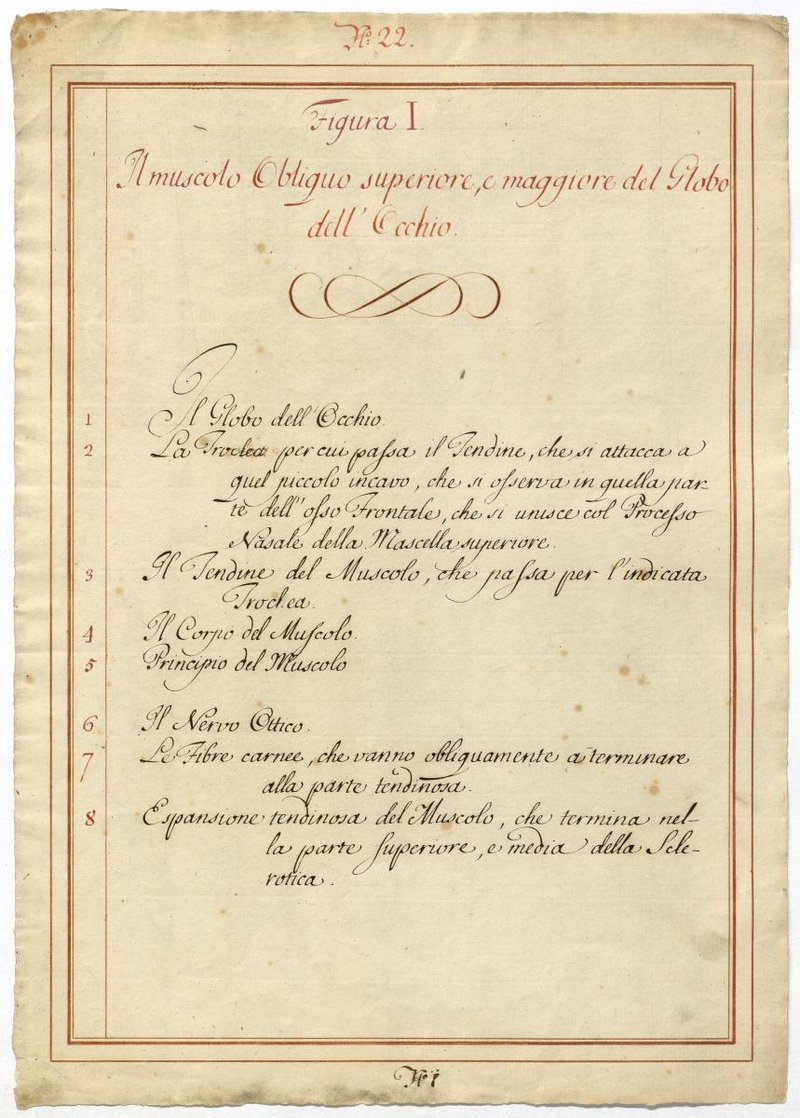 Nº: 22.
Figura I.
Il muscolo Obliquo superiore, e maggiore del Globo
dell' Occhio.
1 Il Globo dell' Occhio.
2 La Troclea per cui passa il Tendine, che si attacca a
quel piccolo incavo, che si osserva in quella par-
te dell' osso Frontale, che si unisce col Processo
Nasale della Mascella superiore.
3 Il Tendine del Muscolo, che passa per l'indicata
Troclea.
4 Il Corpo del Muscolo.
5 Principio del Muscolo
6 Il Nervo Ottico.
7 Le Fibre carnee, che vanno obliquamente a terminare
alla parte tendinosa.
8 Espansione tendinosa del Muscolo, che termina nel-
la parte superiore, e media della Scle-
rotica.
Nº 1